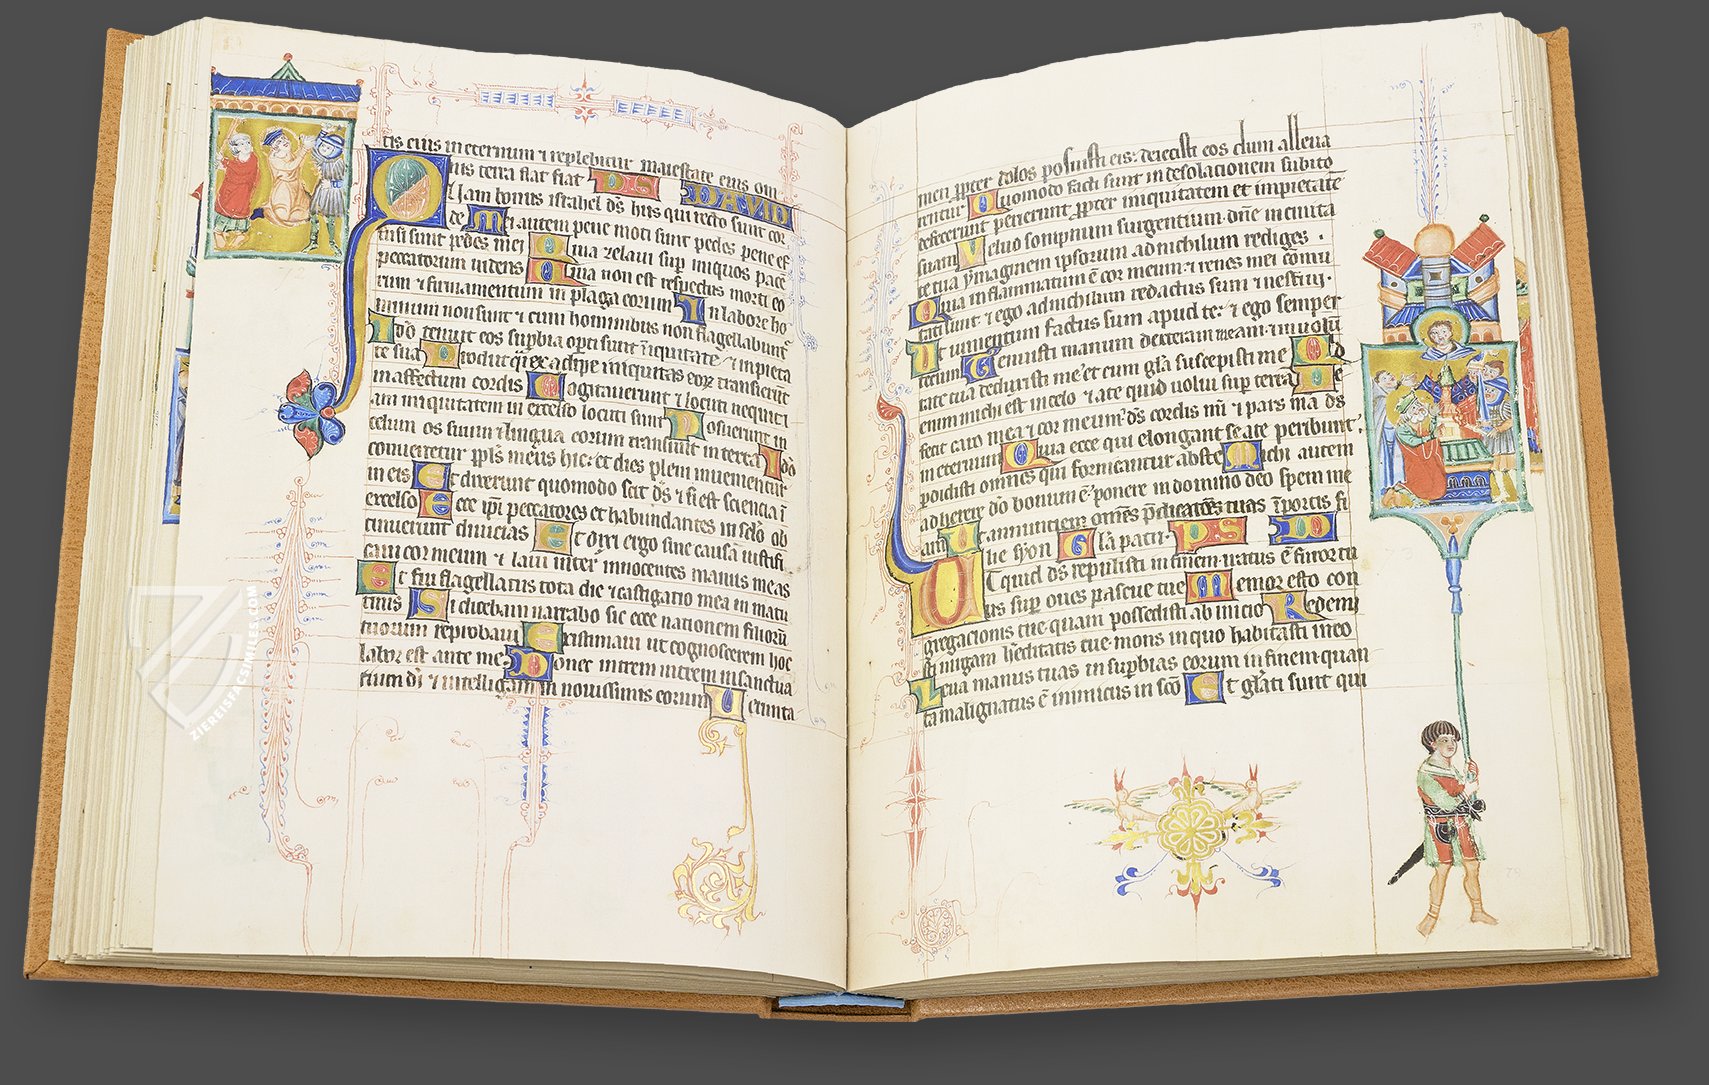 tis eius in eternum ⁊ replebitur maiestate eius om
nis terra fiat fiat PS DAVID
QUam bonus israhel ds̄ hiis qui recto sunt cor
de Mei autem pene moti sunt pedes pene ef
fusi sunt mei Quia zelaui sup̄ iniquos pacē
peccatorum uidens Quia non est respectus morti eo
rum ⁊ firmamentum in plaga eorum In labore ho
minum non sunt ⁊ cum hominibus non flagellabunt᷑
Ideo tenuit eos suꝑbia opti sunt īiquitate ⁊ impieta
te sua Prodiit ex adipe iniquitas eoꝝ transierunt
in affectum cordis Cogitauerunt ⁊ locuti nequiti
am iniquitatem in excelso locuti sunt Posuerunt in
celum os suum ⁊ lingua eorum transiuit in terra Ideo
conuertetur ppl̄s meus hic: et dies pleni inuenientur
in eis Et dixerunt quomodo scit ds̄ ⁊ si est sciencia ī
excelso Ecce ip̄i peccatores et habundantes in sc̄lo ob
tinuerunt diuicias Et dixi ergo sine causa iustifi
caui cor meum ⁊ laui inter innocentes manus meas
Et fui flagellatus tota die ⁊ castigatio mea in matu
tinis Si dicebam narrabo sic ecce nationem filiorū
tuorum reprobaui Existimaui ut cognoscerem hoc
labor est ante me Donec intrem intrem in sanctua
rium di ⁊ intelligam in nouissimis eorum Uerunta
79
men ꝓpter dolos posuisti eis: deiecisti eos dum alleua
rentur Quomodo facti sunt in desolacionem subito
defecerunt perierunt ꝓpter iniquitatem et impietatē
suam Veluo sompnium surgentium dn̄e in ciuita
te tua ymaginem ipsorum ad nichilum rediges.
Quia inflammatum ē cor meum: ⁊ renes mei comu
tati sunt ⁊ ego ad nichilum redactus sum ⁊ nesciui.
Ut iumentum factus sum apud te: ⁊ ego semper
tecum Tenuisti manum dexteram meam: in uolū
tate tua deduxisti me et cum gl̄a suscepisti me Quid
enim michi est in celo ⁊ a te quid uolui sup̄ terrā De
fecit caro mea ⁊ cor meum: ds̄ cordis mī ⁊ pars mā ds̄
in eternum Quia ecce qui elongant se a te peribunt.
perdidisti omnes qui fornicantur abs te Michi autem
adherere dō bonum ē ponere in domino deo spem me
am Ut annunciem om̄es p̄dicatōes tuas ī portis fi
lie syon Gl̄a patri. PS D
Ut quid ds̄ repulisti in finem iratus ē furor tu
us sup̄ oues pascue tue Memor esto con
gregacionis tue quam possedisti ab inicio Redemi
sti uirgam h̄editatis tue mons in quo habitasti in eo
Leua manus tuas in suꝑbias eorum in finem quan
ta malignatus ē inimicus in scō Et gl̄ati sunt qui
73
79
ZIEREISFACSIMILES.COM